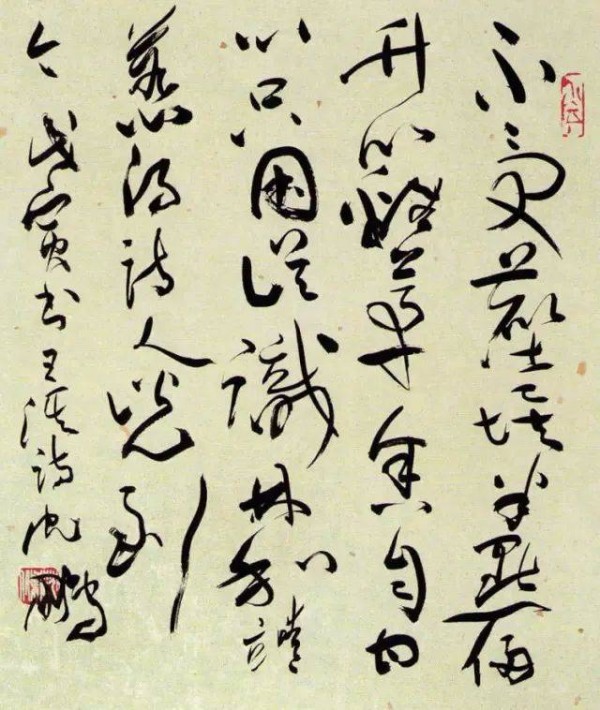 不受塵埃半點侵
竹籬茅舍自甘
心只因误識林和靖
惹得诗人说到
今 戊寅书王淇诗 沈鹏